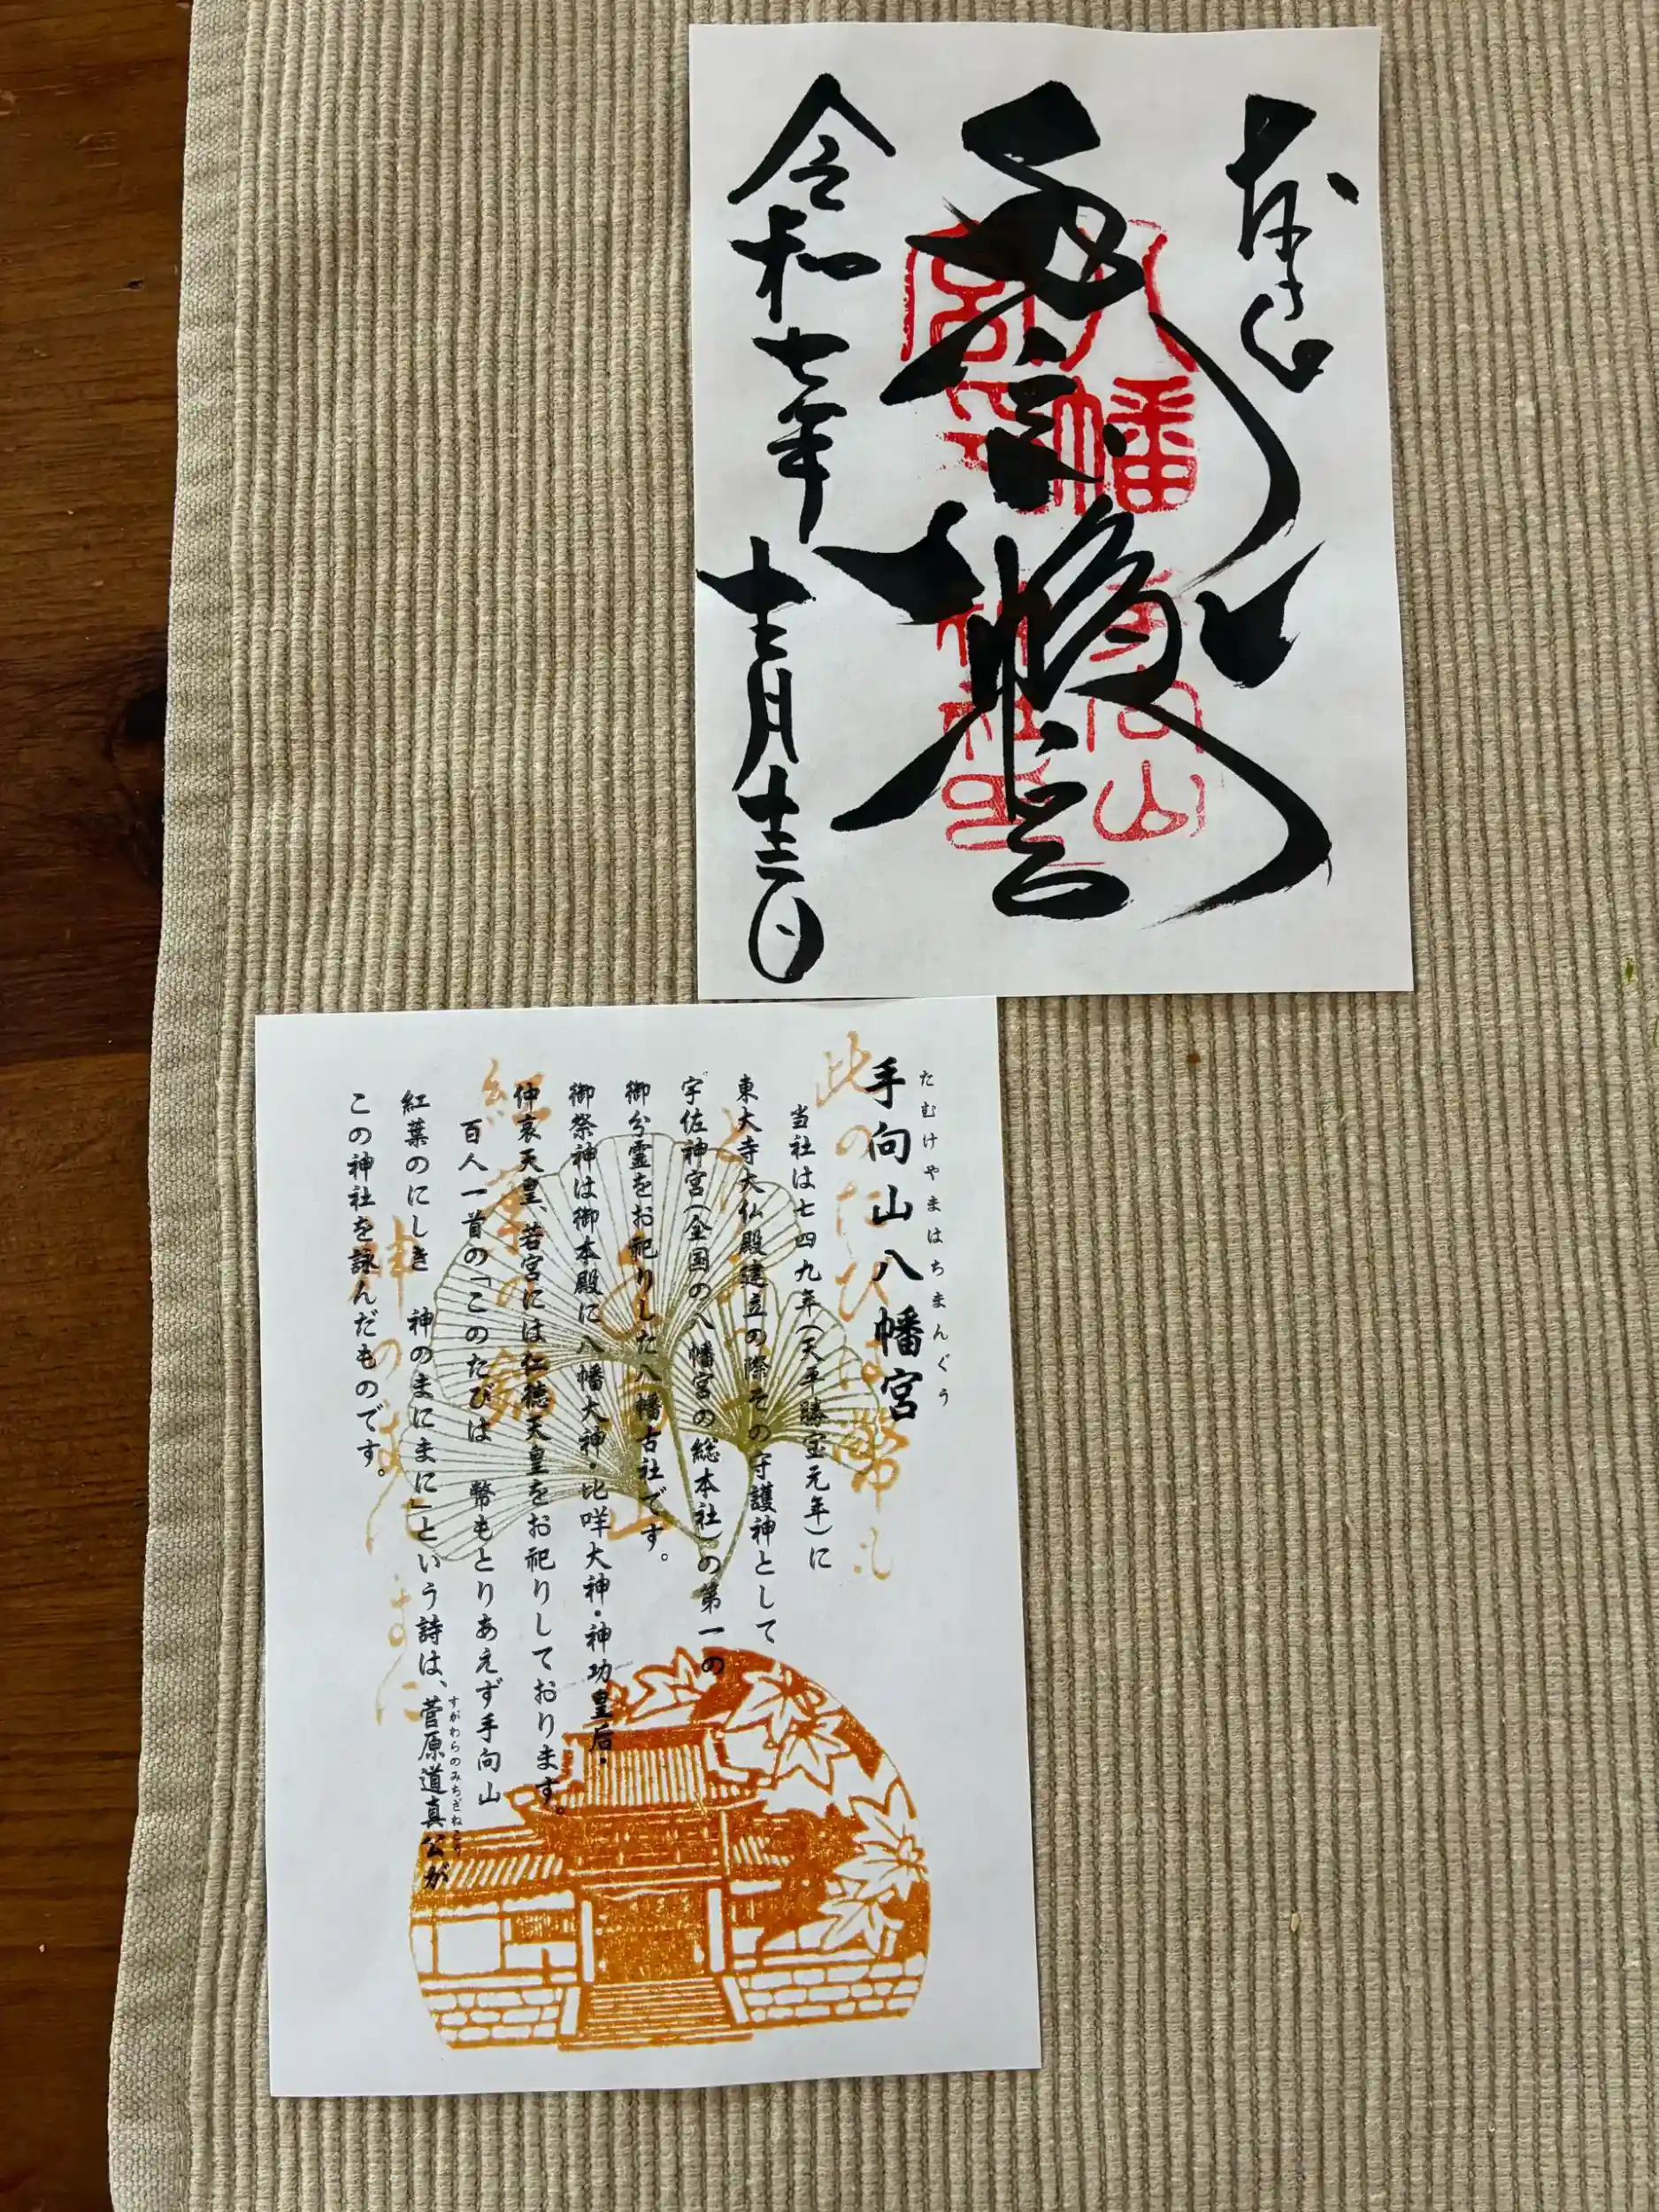 奉拝
八幡
手向山
神社印
令和七年
十二月
手向山八幡宮
たむけやまはちまんぐう
当社は七四九年(天平勝宝元年)に
東大寺大仏殿建立の際その守護神として
宇佐神宮(全国の八幡宮の総本社)の第一の
御分霊をお祀りした八幡古社です。
御祭神は御本殿に八幡大神・比咩大神・神功皇后・
仲哀天皇、若宮には仁徳天皇をお祀りしております。
百人一首の「このたびは 幣もとりあえず手向山
紅葉のにしき 神のまにまに」という詩は、菅原道真公が
すがわらのみちざねこう
この神社を詠んだものです。
此のたひは幣も
紅葉の錦
神のまにまに